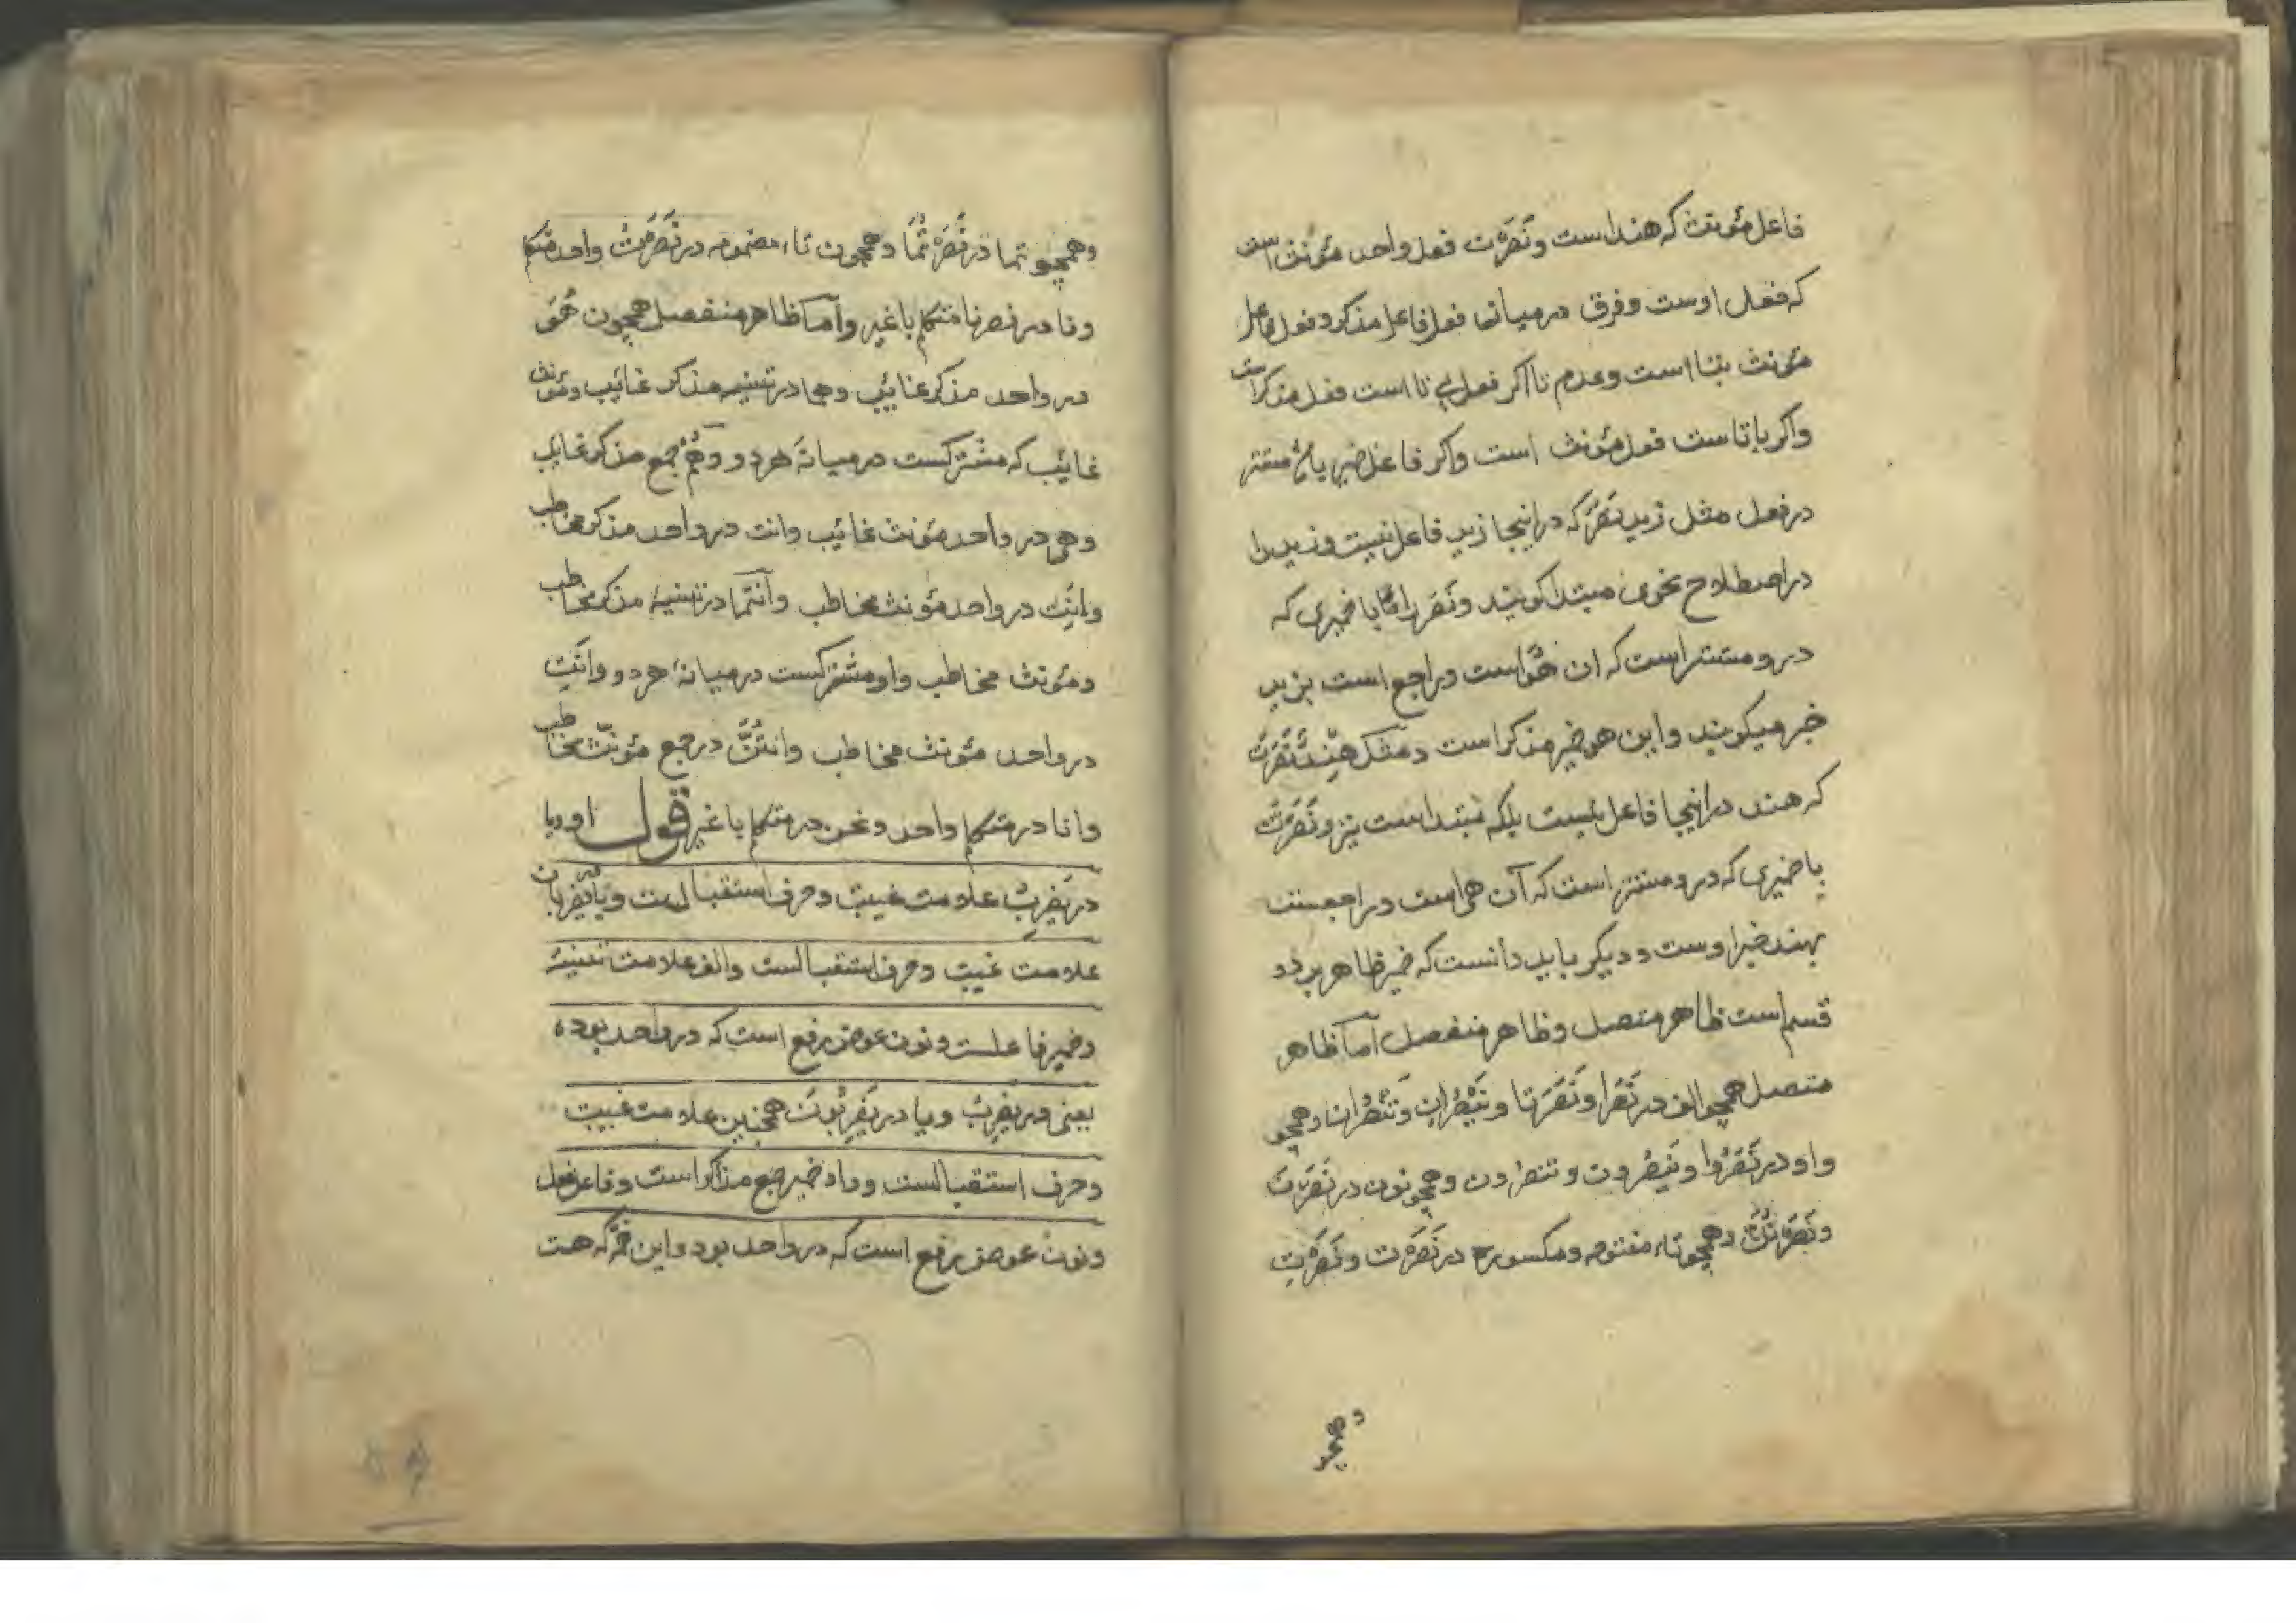 فاعل مؤنث که هند است و نَصَرَت فعل واحد مؤنث است
که فعل اوست و فرق در میانه فعل فاعل مذکر و فعل فاعل
مؤنث بتا است و عدم تا اکر فعل بی تا است فعل مذکر است
واکر با تا ست فعل مؤنث است واکر فاعل ضمیر یا مستتر
در فعل مثل زید نَصَرَ که در اینجا زید فاعل نیست و زید را
در اصطلاح نحوی مبتدا کویند و نَصَرَ را با ضمیری که
در و مستتر است که ان هُوَ است و راجع است بزید
خبر میکویند و این هو ضمیر مذکر است و مثل هِنْدٌ نَصَرَتْ
که هند در اینجا فاعل نیست بلکه مُبتدا است نیز و نَصَرَتْ
با ضمیری که در و مستتر است که آن هی است و راجعست
بهند خبر اوست و دیکر باید دانست که ضمیر ظاهر بر دو
قسم است ظاهر متصل و ظاهر منفصل اَمّا ظاهر
متصل همچو الف در نَصَرا و نَصَرَتا و یَنْصُرانِ و تَنْصُرانِ و همچو
واو در نَصَرُوا و یَنْصُرون و تنصرون و همچو نون در نَصَرْنَ
و نَصَرْتُنَّ و همچو تاء مفتوحه و مکسوره در نَصَرْتَ و نَصَرْتِ
و همچو
و همچو تما در نَصَرْتُمَا و همچون تاء مضمومه در نَصَرْتُ واحد متکلم
و نا در نصرنا متکلم با غیر و اَمّا ظاهر منفصل همچون هُوَ
در واحد مذکر غائب و هما در تثنیه مذکر غائب و مؤنث
غائب که مشترکست در میانهٔ هر دو و هُمْ جمع مذکر غایب
و هی در واحد مؤنث غائب و انت در واحد مذکر مخاطب
و انتِ در واحد مؤنث مخاطب و اَنتُما در تثنیهٔ مذکر مخاطب
و مؤنث مخاطب و او مشترکست در میانهٔ هر دو و انتِ
در واحد مؤنث مخاطب و انتُنَّ در جمع مؤنث مخاطب
و انا در متکلم واحد و نحن در متکلم با غیر قول او و یا
در یَضْرِبُ علامت غیبت و حرف استقبالست و یا یَضْرِبان
علامت غیبت و حرف استقبالست و الف علامت تثنیه
و ضمیر فاعلست و نون عوض رفع است که در واحد بوده
یعنی در یضرب و یا در یَضْرِبُونَ همچنین علامت غیبت
و حرف استقبالست و واو ضمیر جمع مذکر است و فاعل فعل
و نون عوض رفع است که در واحد بود و این ضمّه که هست